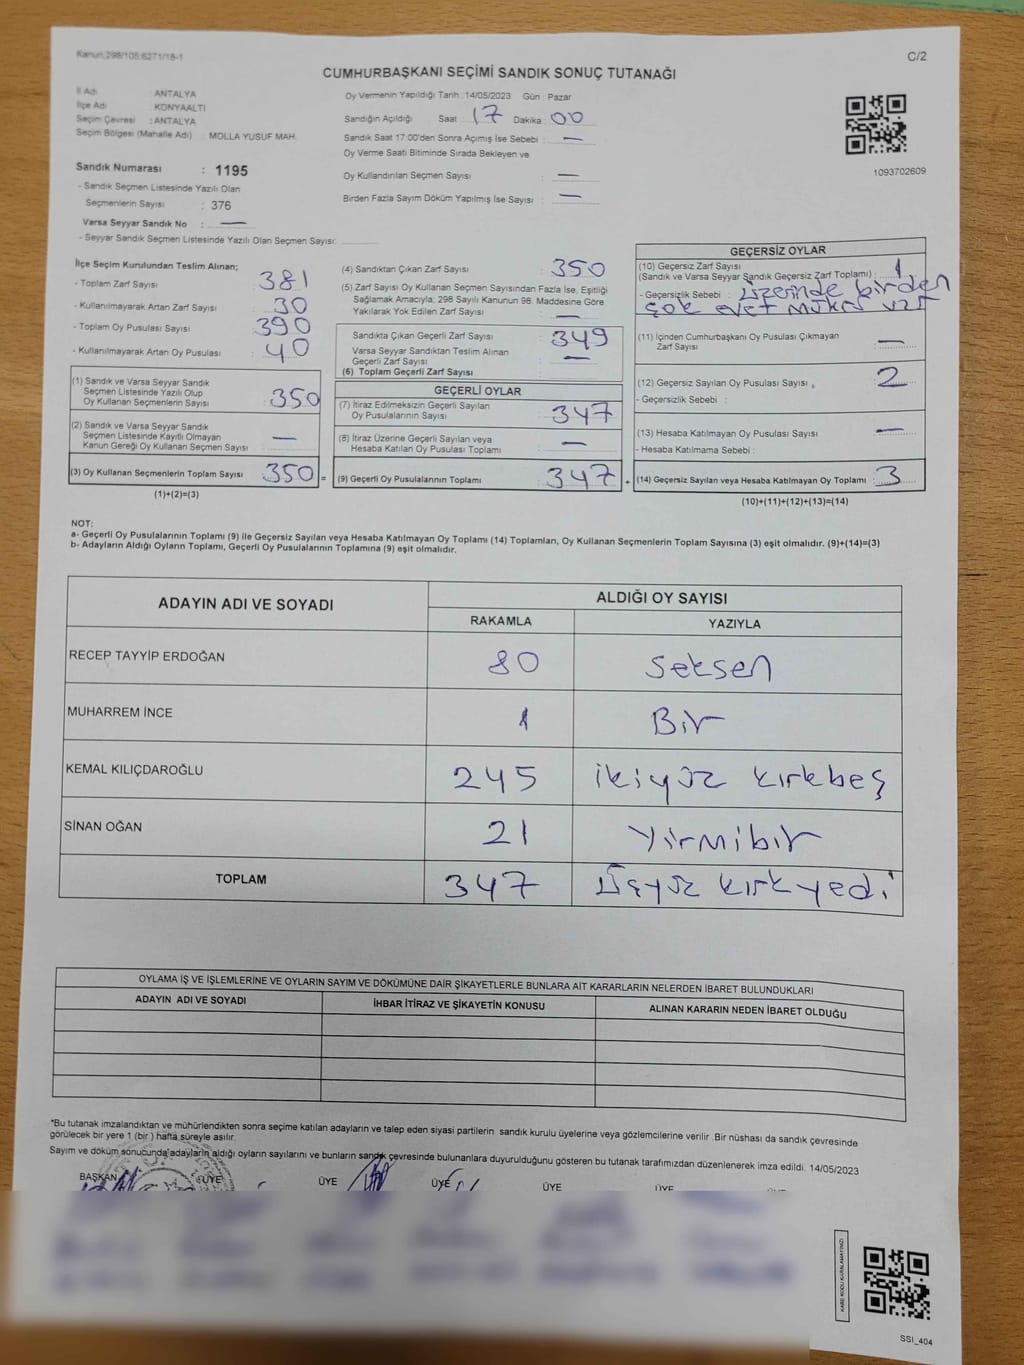 Kanun:298/105:6271/18-1
C/2
CUMHURBAŞKANI SEÇİMİ SANDIK SONUÇ TUTANAĞI
İl Adı ANTALYA
İlçe Adı : KONYAALTI
Seçim Çevresi : ANTALYA
Seçim Bölgesi (Mahalle Adı) : MOLLA YUSUF MAH.
Sandık Numarası : 1195
- Sandık Seçmen Listesinde Yazılı Olan
Seçmenlerin Sayısı : 376
Varsa Seyyar Sandık No : —
- Seyyar Sandık Seçmen Listesinde Yazılı Olan Seçmen Sayısı:
Oy Vermenin Yapıldığı Tarih :14/05/2023 Gün : Pazar
Sandığın Açıldığı Saat : 17 Dakika : 00
Sandık Saat 17:00'den Sonra Açılmış İse Sebebi : —
Oy Verme Saati Bitiminde Sırada Bekleyen ve
Oy Kullandırılan Seçmen Sayısı : —
Birden Fazla Sayım Döküm Yapılmış İse Sayısı : —
1093702609
İlçe Seçim Kurulundan Teslim Alınan;
- Toplam Zarf Sayısı : 381
- Kullanılmayarak Artan Zarf Sayısı : 30
- Toplam Oy Pusulası Sayısı : 390
- Kullanılmayarak Artan Oy Pusulası : 40
(1) Sandık ve Varsa Seyyar Sandık
Seçmen Listesinde Yazılı Olup
Oy Kullanan Seçmenlerin Sayısı : 350
(2) Sandık ve Varsa Seyyar Sandık
Seçmen Listesinde Kayıtlı Olmayan
Kanun Gereği Oy Kullanan Seçmen Sayısı : —
(3) Oy Kullanan Seçmenlerin Toplam Sayısı : 350 =
(1)+(2)=(3)
(4) Sandıktan Çıkan Zarf Sayısı : 350
(5) Zarf Sayısı Oy Kullanan Seçmen Sayısından Fazla İse, Eşitliği
Sağlamak Amacıyla; 298 Sayılı Kanunun 98. Maddesine Göre
Yakılarak Yok Edilen Zarf Sayısı : —
Sandıkta Çıkan Geçerli Zarf Sayısı : 349
Varsa Seyyar Sandıktan Teslim Alınan
Geçerli Zarf Sayısı : —
(6) Toplam Geçerli Zarf Sayısı
GEÇERLİ OYLAR
(7) İtiraz Edilmeksizin Geçerli Sayılan
Oy Pusulalarının Sayısı : 347
(8) İtiraz Üzerine Geçerli Sayılan veya
Hesaba Katılan Oy Pusulası Toplamı : —
(9) Geçerli Oy Pusulalarının Toplamı : 347 +
GEÇERSİZ OYLAR
(10) Geçersiz Zarf Sayısı
(Sandık ve Varsa Seyyar Sandık Geçersiz Zarf Toplamı) : 1
- Geçersizlik Sebebi : üzerinde birden
çok evet
(11) İçinden Cumhurbaşkanı Oy Pusulası Çıkmayan
Zarf Sayısı : —
(12) Geçersiz Sayılan Oy Pusulası Sayısı : 2
- Geçersizlik Sebebi :
(13) Hesaba Katılmayan Oy Pusulası Sayısı : —
- Hesaba Katılmama Sebebi :
(14) Geçersiz Sayılan veya Hesaba Katılmayan Oy Toplamı : 3
(10)+(11)+(12)+(13)=(14)
NOT:
a- Geçerli Oy Pusulalarının Toplamı (9) ile Geçersiz Sayılan veya Hesaba Katılmayan Oy Toplamı (14) Toplamları, Oy Kullanan Seçmenlerin Toplam Sayısına (3) eşit olmalıdır. (9)+(14)=(3)
b- Adayların Aldığı Oyların Toplamı, Geçerli Oy Pusulalarının Toplamına (9) eşit olmalıdır.
ADAYIN ADI VE SOYADI ALDIĞI OY SAYISI
RAKAMLA YAZIYLA
RECEP TAYYİP ERDOĞAN 80 Seksen
MUHARREM İNCE 1 Bir
KEMAL KILIÇDAROĞLU 245 ikiyüz kırkbeş
SİNAN OĞAN 21 Yirmibir
TOPLAM 347 Üçyüz kırkyedi
OYLAMA İŞ VE İŞLEMLERİNE VE OYLARIN SAYIM VE DÖKÜMÜNE DAİR ŞİKAYETLERLE BUNLARA AİT KARARLARIN NELERDEN İBARET BULUNDUKLARI
ADAYIN ADI VE SOYADI İHBAR İTİRAZ VE ŞİKAYETİN KONUSU ALINAN KARARIN NEDEN İBARET OLDUĞU
*Bu tutanak imzalandıktan ve mühürlendikten sonra seçime katılan adayların ve talep eden siyasi partilerin sandık kurulu üyelerine veya gözlemcilerine verilir .Bir nüshası da sandık çevresinde
görülecek bir yere 1 (bir ) hafta süreyle asılır.
Sayım ve döküm sonucunda adayların aldığı oyların sayılarını ve bunların sandık çevresinde bulunanlara duyurulduğunu gösteren bu tutanak tarafımızdan düzenlenerek imza edildi. 14/05/2023
BAŞKAN ÜYE ÜYE ÜYE ÜYE ÜYE
KARE KODU KARALAMAYINIZ!
SSI_404